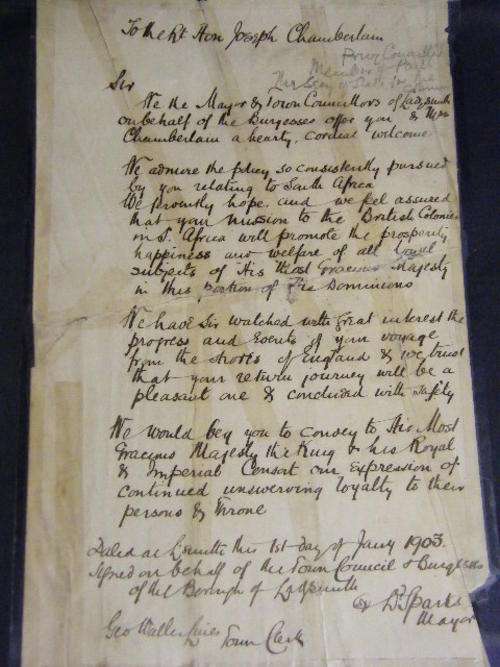 To the Rt Hon Joseph Chamberlain
Privy Councillor
Member of Parl
Sir
We the Mayor & Town Councillors of Ladysmith
on behalf of the Burgesses offer you & Mrs
Chamberlain a hearty, cordial welcome
We admire the policy so consistently pursued
by you relating to South Africa
We fervently hope, and we feel assured
that your mission to the British Colonies
in S. Africa will promote the prosperity
happiness and welfare of all loyal
subjects of His Most Gracious Majesty
in this portion of the Dominions
We have Sir watched with great interest the
progress and Events of your voyage
from the shores of England & we trust
that your return journey will be a
pleasant one & concluded with safety
We would beg you to convey to His Most
Gracious Majesty the King & his Royal
& Imperial Consort our Expression of
continued unswerving loyalty to their
persons & throne
Dated at L'smith this 1st day of Jany 1903.
Signed on behalf of the Town Council & Burgesses
of the Borough of L'dysmith
D Sparks
Mayor
Geo
Town Clerk